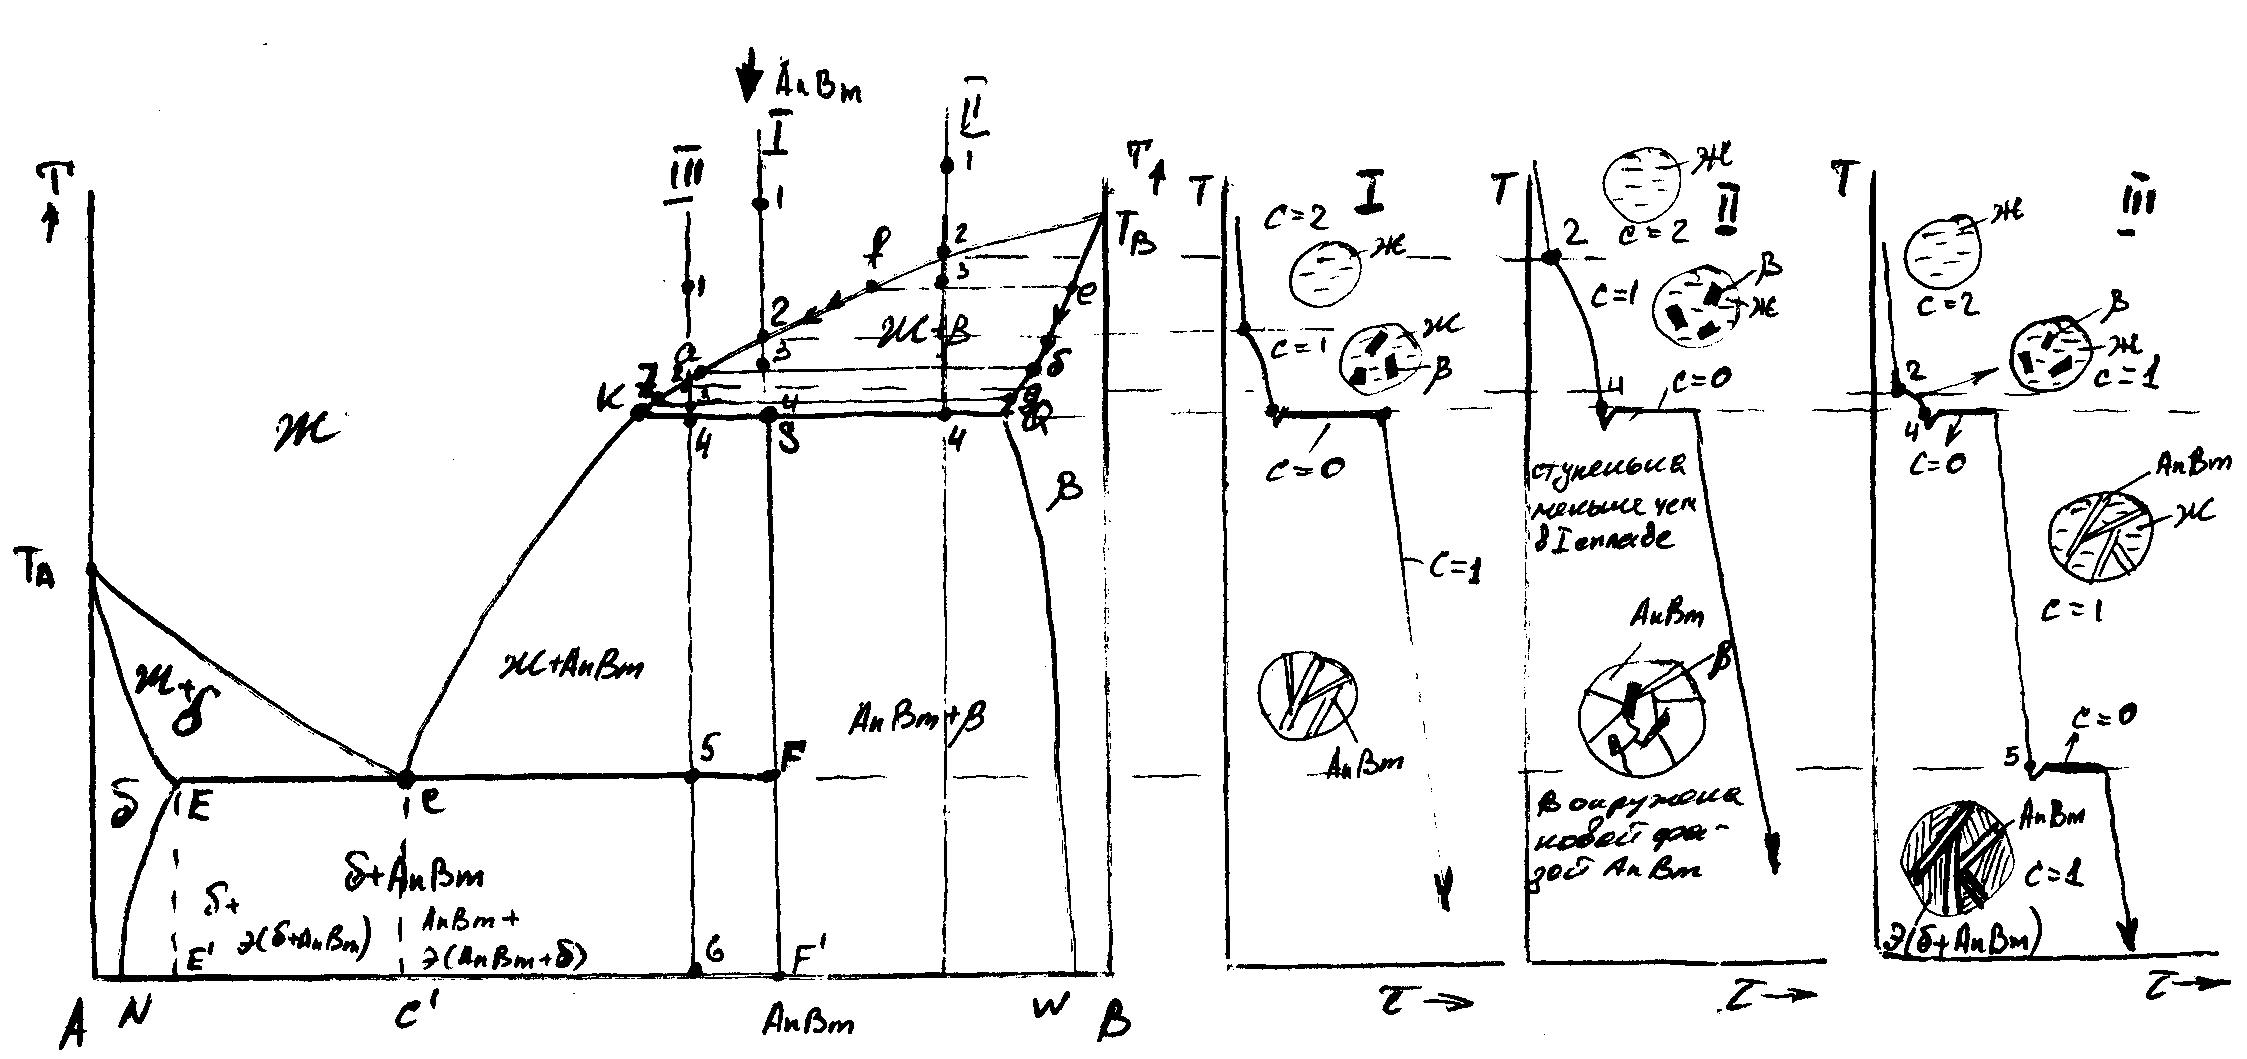 AnBm
III
I
II
T
1
1
1
T
TB
2
f
3
e
2
Ж+β
3
a
2
3
б
K
Z
g
Q
4
4
S
4
Ж
β
TA
Ж+δ
Ж+AnBm
AnBm+β
5
F
δ
E
c
δ+AnBm
δ+
Э(δ+AnBm)
AnBm+
Э(AnBm+δ)
E'
6
F'
A
N
c'
AnBm
W
B
T
I
c=2
Ж
c=1
Ж
β
c=0
c=1
AnBm
τ
T
II
Ж
c=2
2
c=1
β
Ж
4
c=0
ступенька
меньше чем
в I сплаве
AnBm
β
β окружена
новой фа-
зой AnBm
τ
T
III
Ж
c=2
2
β
Ж
c=1
4
c=0
AnBm
Ж
c=1
5
c=0
AnBm
c=1
Э(δ+AnBm)
τ